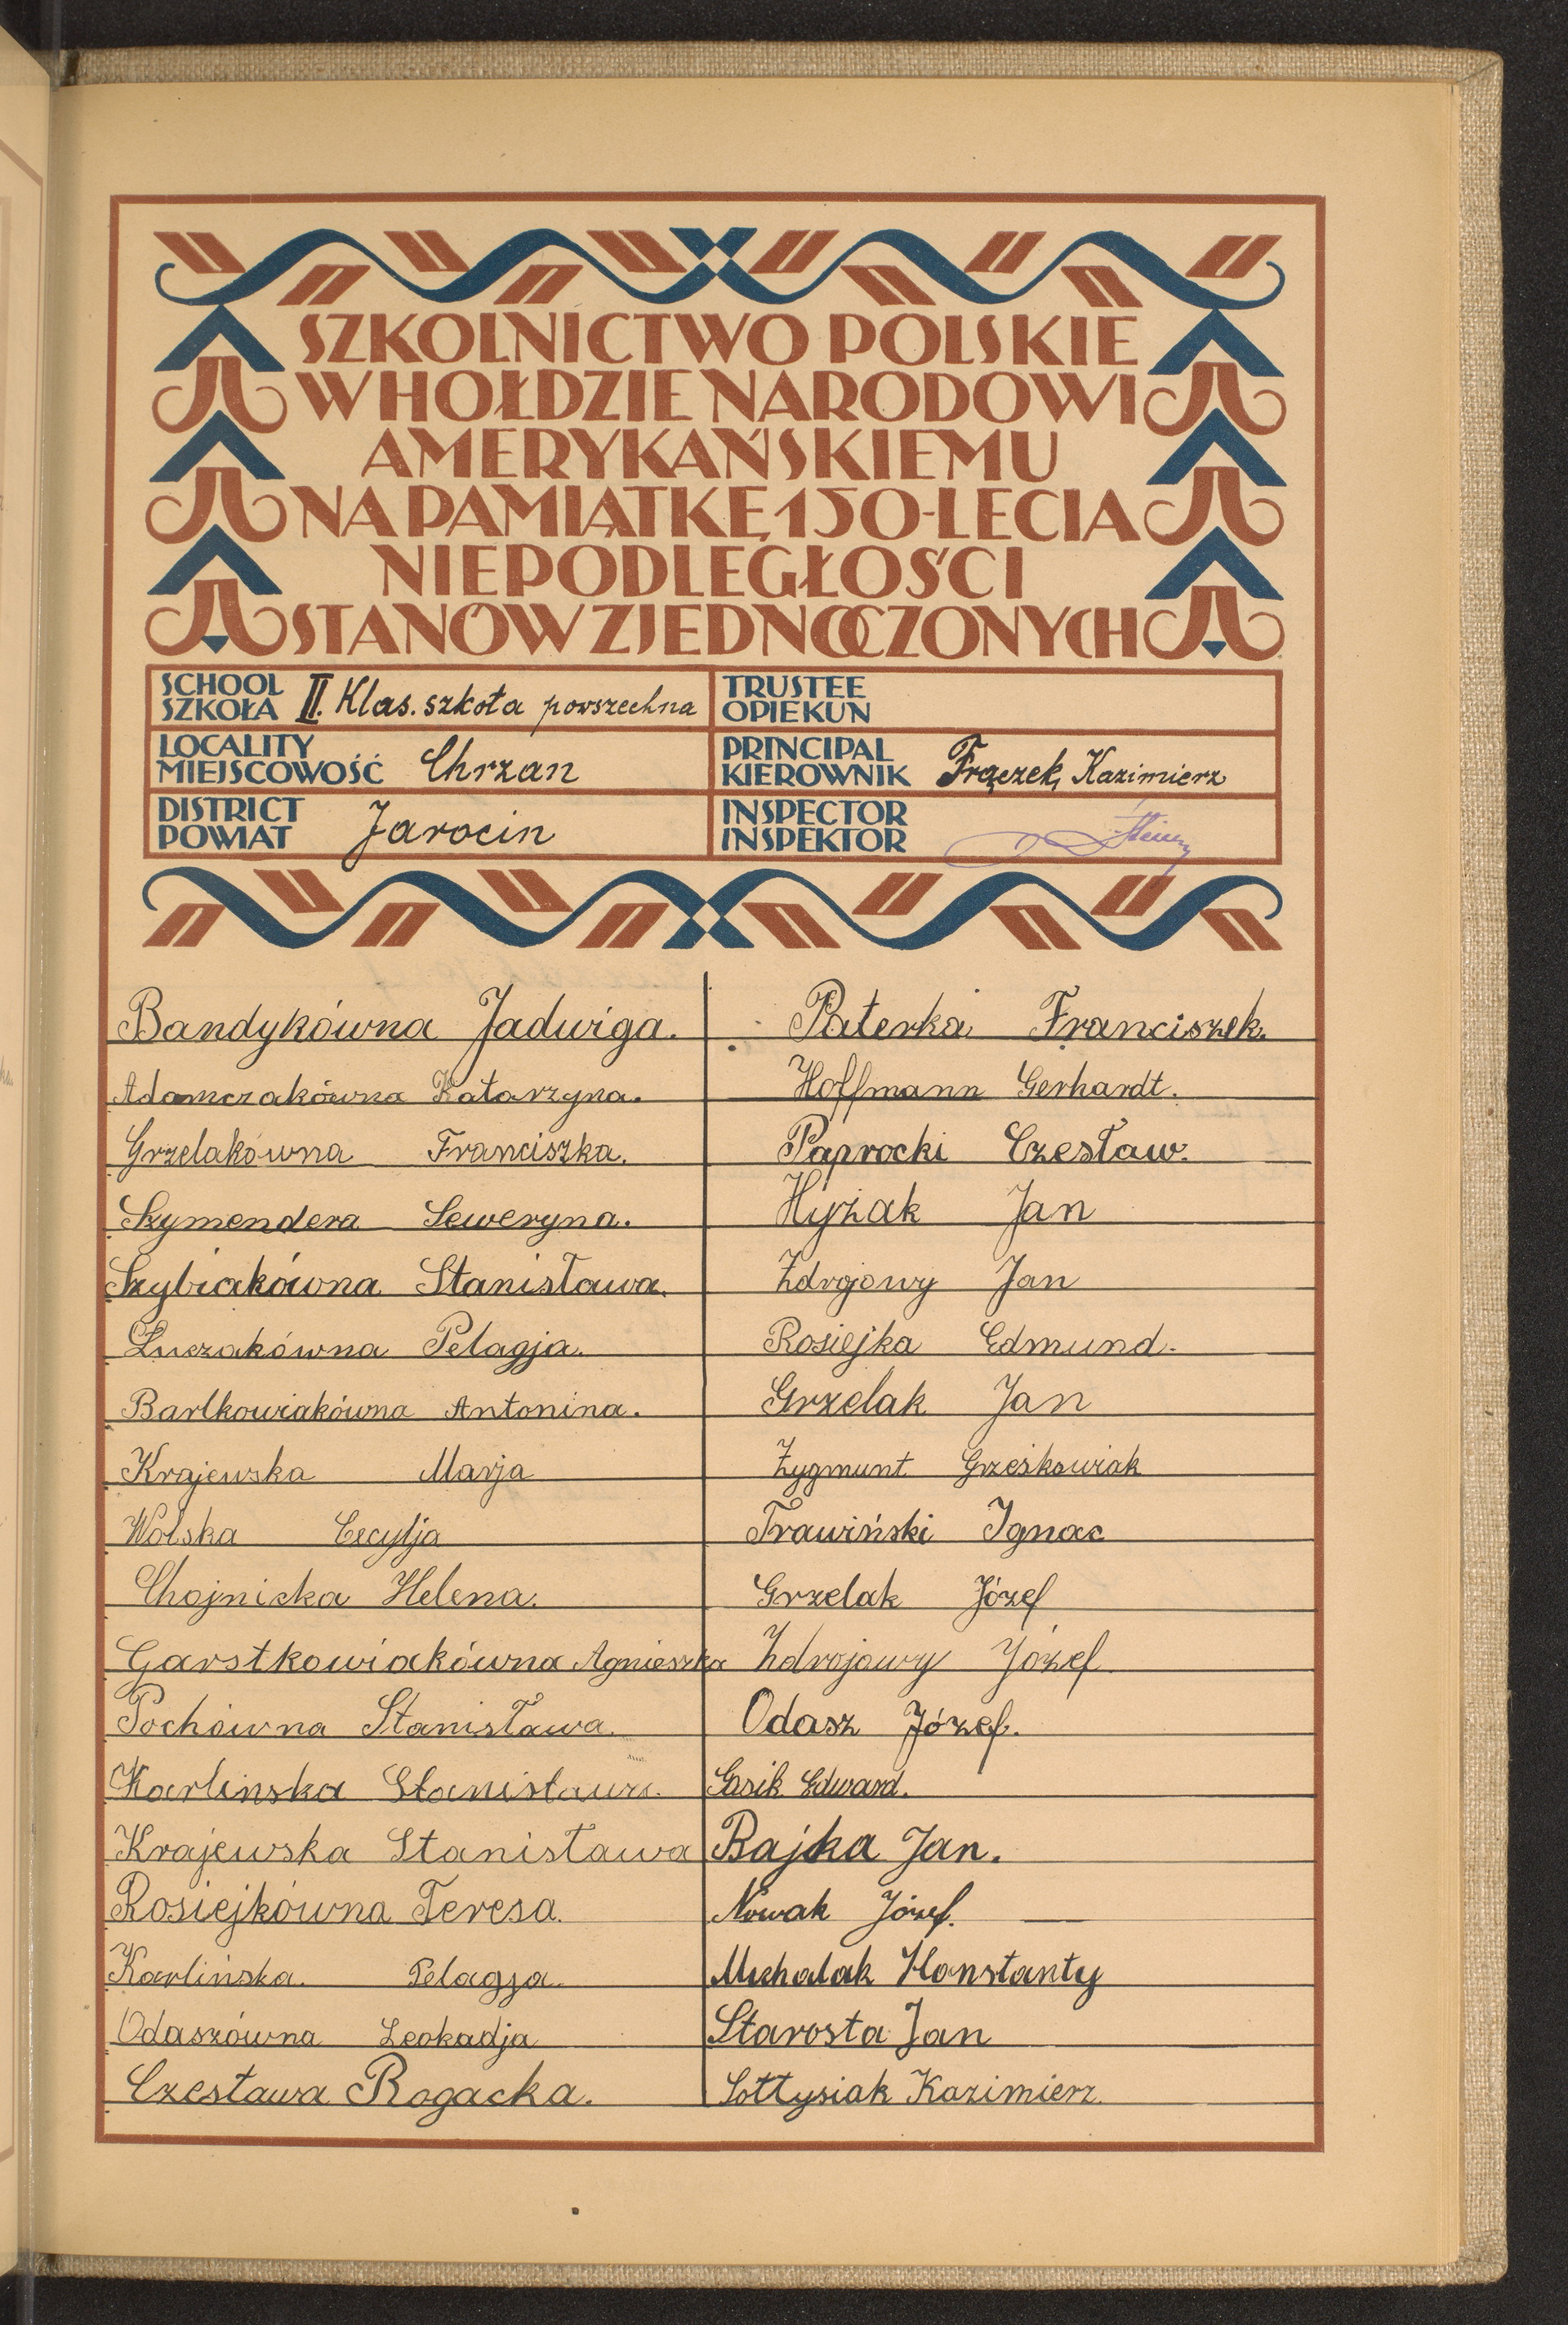 SZKOLNICTWO POLSKIE
W HOŁDZIE NARODOWI
AMERYKAŃSKIEMU
NA PAMIĄTKĘ 150-LECIA
NIEPODLEGŁOŚCI
STANÓW ZJEDNOCZONYCH
SCHOOL
SZKOŁA II. Klas. szkoła powszechna
TRUSTEE
OPIEKUN
LOCALITY
MIEJSCOWOŚĆ Chrzan
PRINCIPAL
KIEROWNIK Frączek, Kazimierz
DISTRICT
POWIAT Jarocin
INSPECTOR
INSPEKTOR
Bandykówna Jadwiga.
Adamczakówna Katarzyna.
Grzelakówna Franciszka.
Szymendera Seweryna.
Szybiakówna Stanisława.
Łuczakówna Pelagja.
Bartkowiakówna Antonina.
Krajewska Marja
Wolska Cecylja
Chojnicka Helena.
Garstkowiakówna Agnieszka
Pochówna Stanisława.
Karlinska Stanisława.
Krajewska Stanisława
Rosiejkówna Teresa.
Karlińska Pelagja.
Odaszówna Leokadja
Czesława Rogacka.
Paterka Franciszek.
Hoffmann Gerhardt.
Paprocki Czesław.
Hyżak Jan
Zdrojowy Jan
Rosiejka Edmund.
Grzelak Jan
Zygmunt Grześkowiak
Trawiński Ignac
Grzelak Józef
Zdrojowy Józef.
Odasz Józef.
Gasik Edward.
Bajka Jan.
Nowak Józef.
Michalak Konstanty
Starosta Jan
Sołtysiak Kazimierz.